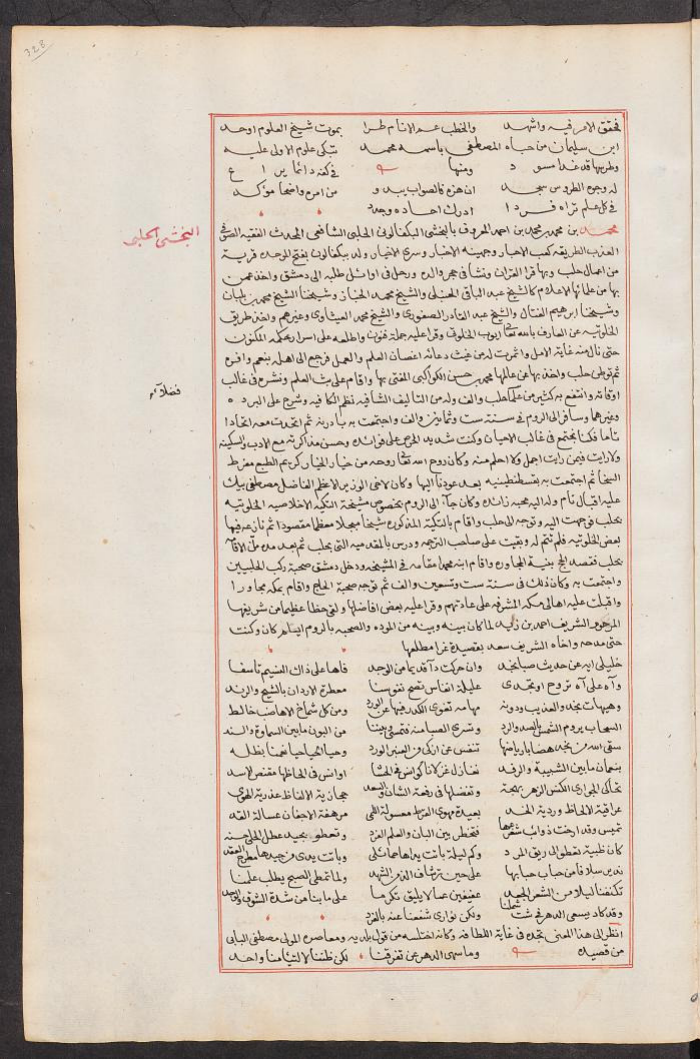 328
فحقق الامر فيه واشهد والخطب عم الانام طرا بموت شيخ العلوم اوحد
ابن سليمان من حباه المصطفى باسمه محمد تبكى علوم الاولى عليه
وطرسها قد غدا مسود ومنها فى كفه دائما يراع
له وجوه الطروس سجد ان هزه فالصواب يبدو من امره واضحا مؤكد
فى كل علم تراه فردا ادرك اجاده وجدد
محمد بن محمد بن محمد بن احمد المعروف بالبخشى البكفالونى الحلبى الشافعى المحدث الفقيه الصوفى
البخشى الحلبى
العذب الطريقه كعب الاحبار وجهينة الاخبار وسرى الاخيار ولد ببكفالون بفتح الموحده قرية
من اعمال حلب وبها قرا القران ونشا فى حجر والده ورحل فى اوائل طلبه الى دمشق واخذ عمن
بها من علمائها الاعلام كالشيخ عبد الباقى الحنبلى والشيخ محمد الخباز وشيخنا الشيخ محمد بن بلبان
وشيخنا ابرهيم الفتال والشيخ عبد القادر الصفورى والشيخ محمد العيثاوى وغيرهم واخذ طريق
الخلوتيه عن العارف بالله تعالى ايوب الخلوتى وقرا عليه جملة فنون واطلعه على اسرار حكمه المكنون
حتى نال منه غاية الامل واثمرت له من غيث دعائه اغصان العلم والعمل فرجع الى اهله بنعم وافره
ثم توطن حلب واخذ بها عن عالمها محمد بن حسن الكواكبى المفتى بها واقام على بث العلم ونشره فى غالب
فضلاء
اوقاته وانتفع به كثير من علماء حلب والف وله من التاليف الشافيه نظم الكافيه وشرح على البرده
وغيرهما وسافر الى الروم فى سنة ست وثمانين والف واجتمعت به بادرنه ثم اتحدت معه اتحادا
تاما فكنا نجتمع فى غالب الاحيان وكنت شديد الحرص على فوائده وحسن مذاكرته مع الادب والسكينه
ولا رايت فيمن رايت اجمل ولا احلم منه وكان روح الله تعالى روحه من خيار الخيار كريم الطبع مفرط
السخا ثم اجتمعت به بقسطنطينيه بعد عودنا اليها وكان لاخى الوزير الاعظم الفاضل مصطفى بيك
عليه اقبال تام وله اليه محبة زائده وكان جآء الى الروم بخصوص مشيخة التكيه الاخلاصيه الخلوتيه
بحلب فوجهت اليه وتوجه الى حلب واقام بالتكية المذكوره شيخا مبجلا معظما مقصودا ثم نازعه فيها
بعض الخلوتيه فلم تتم له وبقيت على صاحب الترجمه ودرس بالمقدميه التى بحلب ثم بعد مدة مل الاقامه
بحلب فقصد الحج بنية المجاوره واقام ابنه محمدا مقامه فى المشيخه ودخل دمشق صحبة ركب الحلبيين
واجتمعت به وكان ذلك فى سنة ست وتسعين والف ثم توجه صحبة الحاج واقام بمكه مجاورا
واقبلت عليه اهالى مكه المشرفه على عادتهم وقرا عليه بعض افاضلها ولقى حظا عظيما من شريفها
المرحوم الشريف احمد بن زيد لما كان بينه وبينه من الموده والصحبه بالروم
حتى مدحه واخاه الشريف سعد بقصيدة غرا مطلعها
خليلى ايه عن حديث صبا نجد وان حركت داء قديما من الوجد فآها على ذاك النسيم تاسفا
وآه على آه تروح او تجدى عليلة انفاس تصح نفوسنا معطرة الاردان بالشيح والرند
وهيهات نجد والعذيب ودونه مهامه تغوى الكدر فيها عن الورد ومن كل شماخ الاهاضب خالط
السحاب يروم الشمس بالصد والرد وتسرى الصبا منه فتمسى وبيننا من البون ما بين السماوة والسند
سقى الله من نجد هضابا رياضها تنفس عن اذكى من العنبر الورد وحيا الحيا حيا نعمنا بظله
بنعمان ما بين الشبيبة والرفد نغازل غزلانا كوانس فى الحشا اوانس فى الحاظها مقنص الاسد
تحاكى الجوارى الكنس الزهر بهجة وتفضلها فى رفعة الشان والسعد حجازية الالفاظ عذرية الهوى
عراقية الالحاظ وردية الخد بعيدة مهوى القرط معسولة اللمى مرهفة الاجفان عسالة القد
تميس وقد ارخت ذوائب شعرها فتخطر بين البان والعلم الفرد وتعطو بجيد عطل الحلى حسنه
كان ظبية تعطو الى ريق المرد وكم ليلة باتت يداها حمائلى وباتت يدى من جيدها مطرح العقد
ندير سلافا من حباب حبابها على حين ترشاف الذ من الشهد ولما تمطى الصبح يطلب علمنا
تكنفنا ليل من الشعر الجعد عفيفين عما لا يليق تكرما على ما بنا من شدة الشوق والوجد
وقد كاد يسعى الدهر فى شت شملنا ولكن توارى شفعنا عنه بالفرد
انظر الى هذا المعنى تجده فى غاية اللطافه وكانه اختلسه من قول بلديه ومعاصره المولى مصطفى البابى
من قصيده وما سهى الدهر عن تفرقنا لكن ظننا لالتئامنا واحد